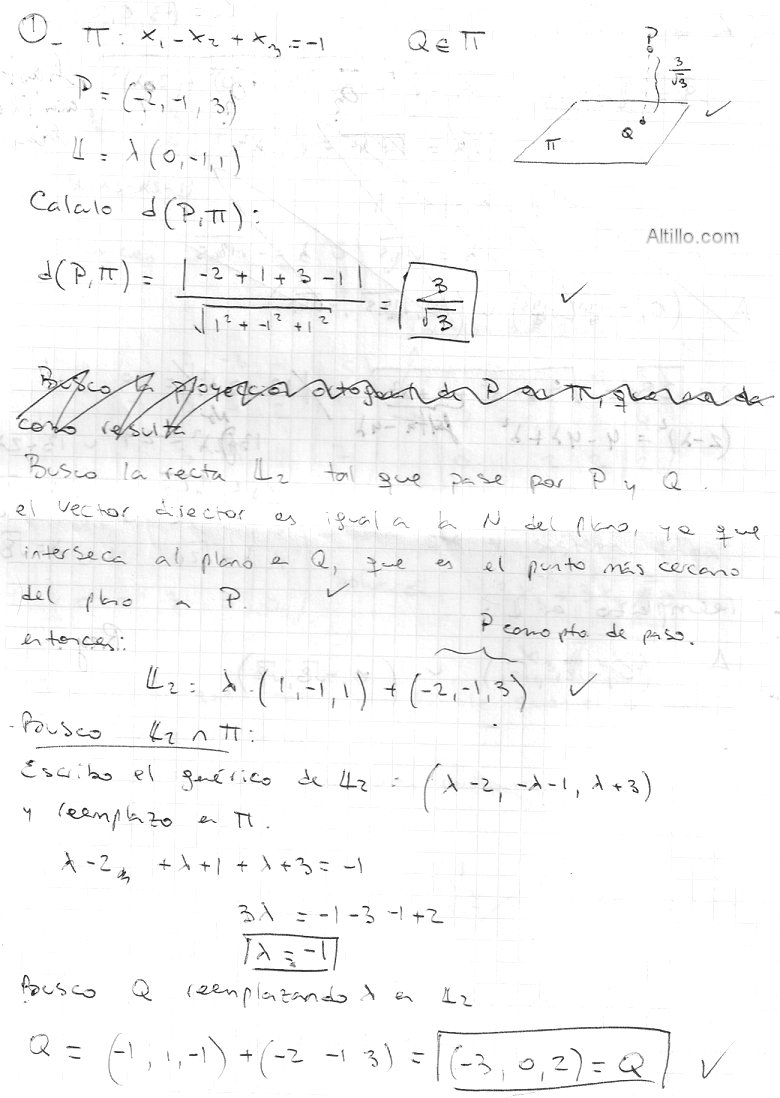 ①- π: x₁ - x₂ + x₃ = -1 Q ∈ π
P
3/√3
Q
π
P = (-2, -1, 3)
𝕃 = λ(0, -1, 1)
Altillo.com
Calculo d(P, π):
d(P, π) = |-2 + 1 + 3 - 1| / √(1² + -1² + 1²) = 3/√3
Busco la proyección ortogonal de P en π, que me da
como resulta
Busco la recta 𝕃₂ tal que pase por P y Q.
el vector director es igual a la N del plano, ya que
interseca al plano en Q, que es el punto más cercano
del plano a P.
entonces:
P como pto de paso.
𝕃₂ = λ·(1, -1, 1) + (-2, -1, 3)
-Busco 𝕃₂ ∩ π:
Escribo el genérico de 𝕃₂ = (λ-2, -λ-1, λ+3)
y reemplazo en π.
λ-2 +λ+1 +λ+3 = -1
3λ = -1-3-1+2
λ = -1
Busco Q reemplazando λ en 𝕃₂
Q = (-1, 1, -1) + (-2 -1 3) = (-3, 0, 2) = Q